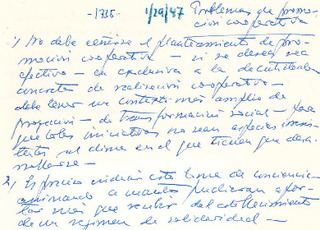 -1735- 1/29/47 Problemas de promo-
ción cooperativa
1) No debe ceñirse el planteamiento de pro-
moción cooperativa - si se desea ser
efectivo - en exclusiva a la de entidades
concretas de realización cooperativa -
debe tener un contexto más amplio de
proyección - de transformación social - para
que tales iniciativas no sean especies
al clima en el que tienen que desa-
rrollarse -
2) Es preciso iniciar esta toma de conciencia
animando a cuantos pudieran apor-
tar más que recibir del establecimiento
de un régimen de solidaridad -